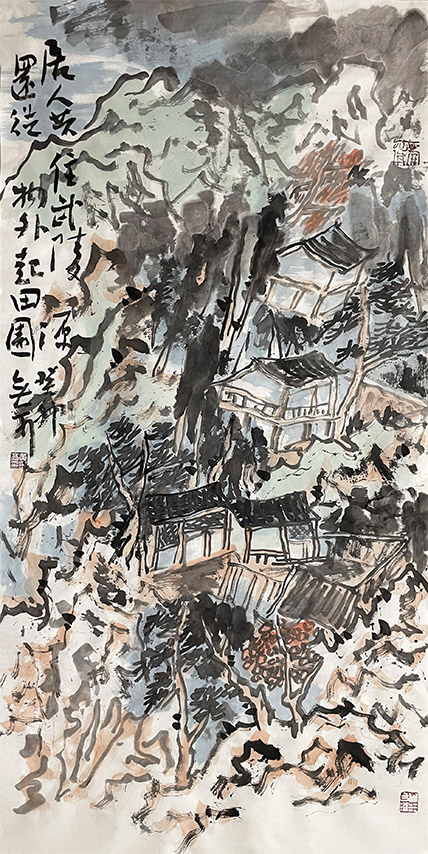 居人共住武陵源 癸卯
還從物外起田園